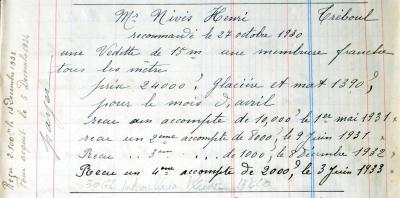 Mr Nivès Henri Tréboul
recommandé le 27 octobre 1930
une Vedette de 15m une membrure franche
tous les mètre
prix 24000f Glacière et mat 1390f
pour le mois d'avril
recu un accompte de 10,000f 1er mai 1931
recu un 2eme accompte de 8000f le 9 Juin 1931
Recu .. 3em .. .. de 1000f le 8 Décembre 1932
Recu un 4eme accompte de 2000f le 3 Juin 1933
Reçu 2.500
Pour acquit le 5 Decembre